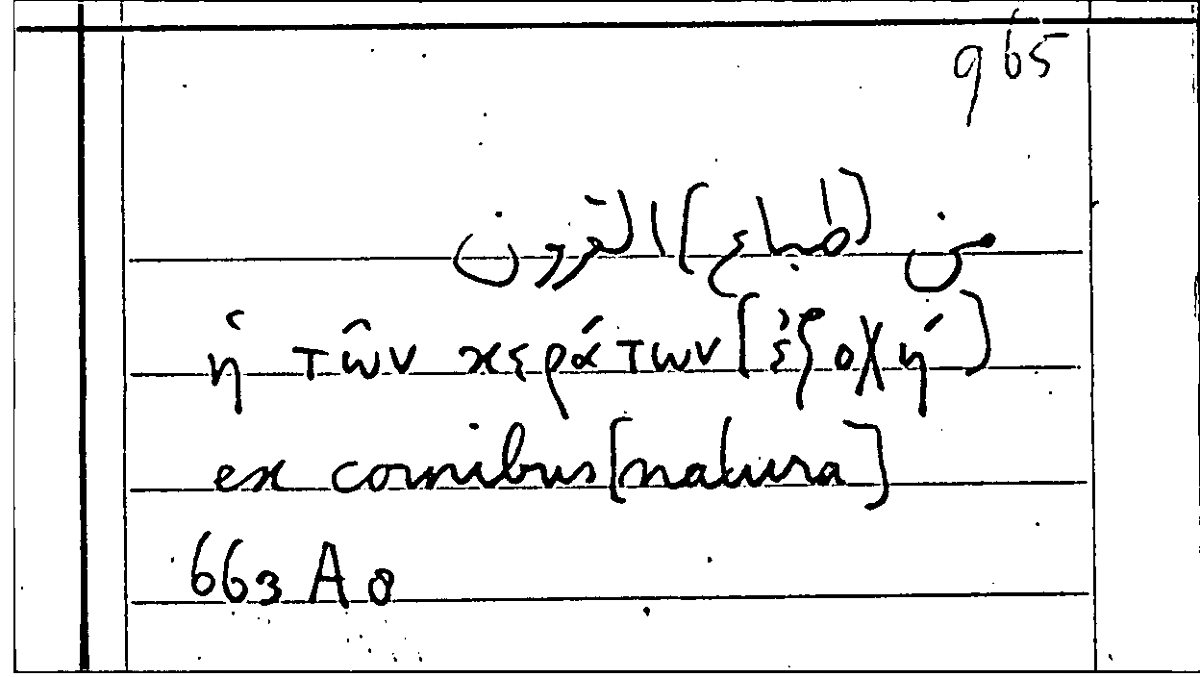 965
من [طباع] القرون
ἡ τῶν κεράτων [ἐξοχή]
ex cornibus [natura]
663 A 8